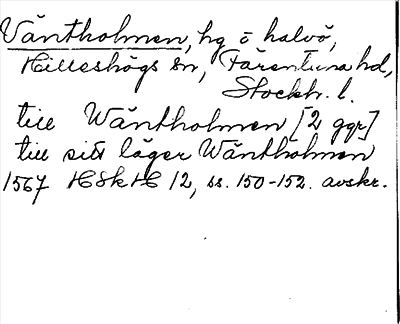 Väntholmen, hg o halvö,
Hilleshögs sn, Färentuna hd,
Stockh. l.
till Wäntholmen [2 ggr]
till sitt läger Wäntholmen
1567 HSkH 12, ss. 150-152. avskr.